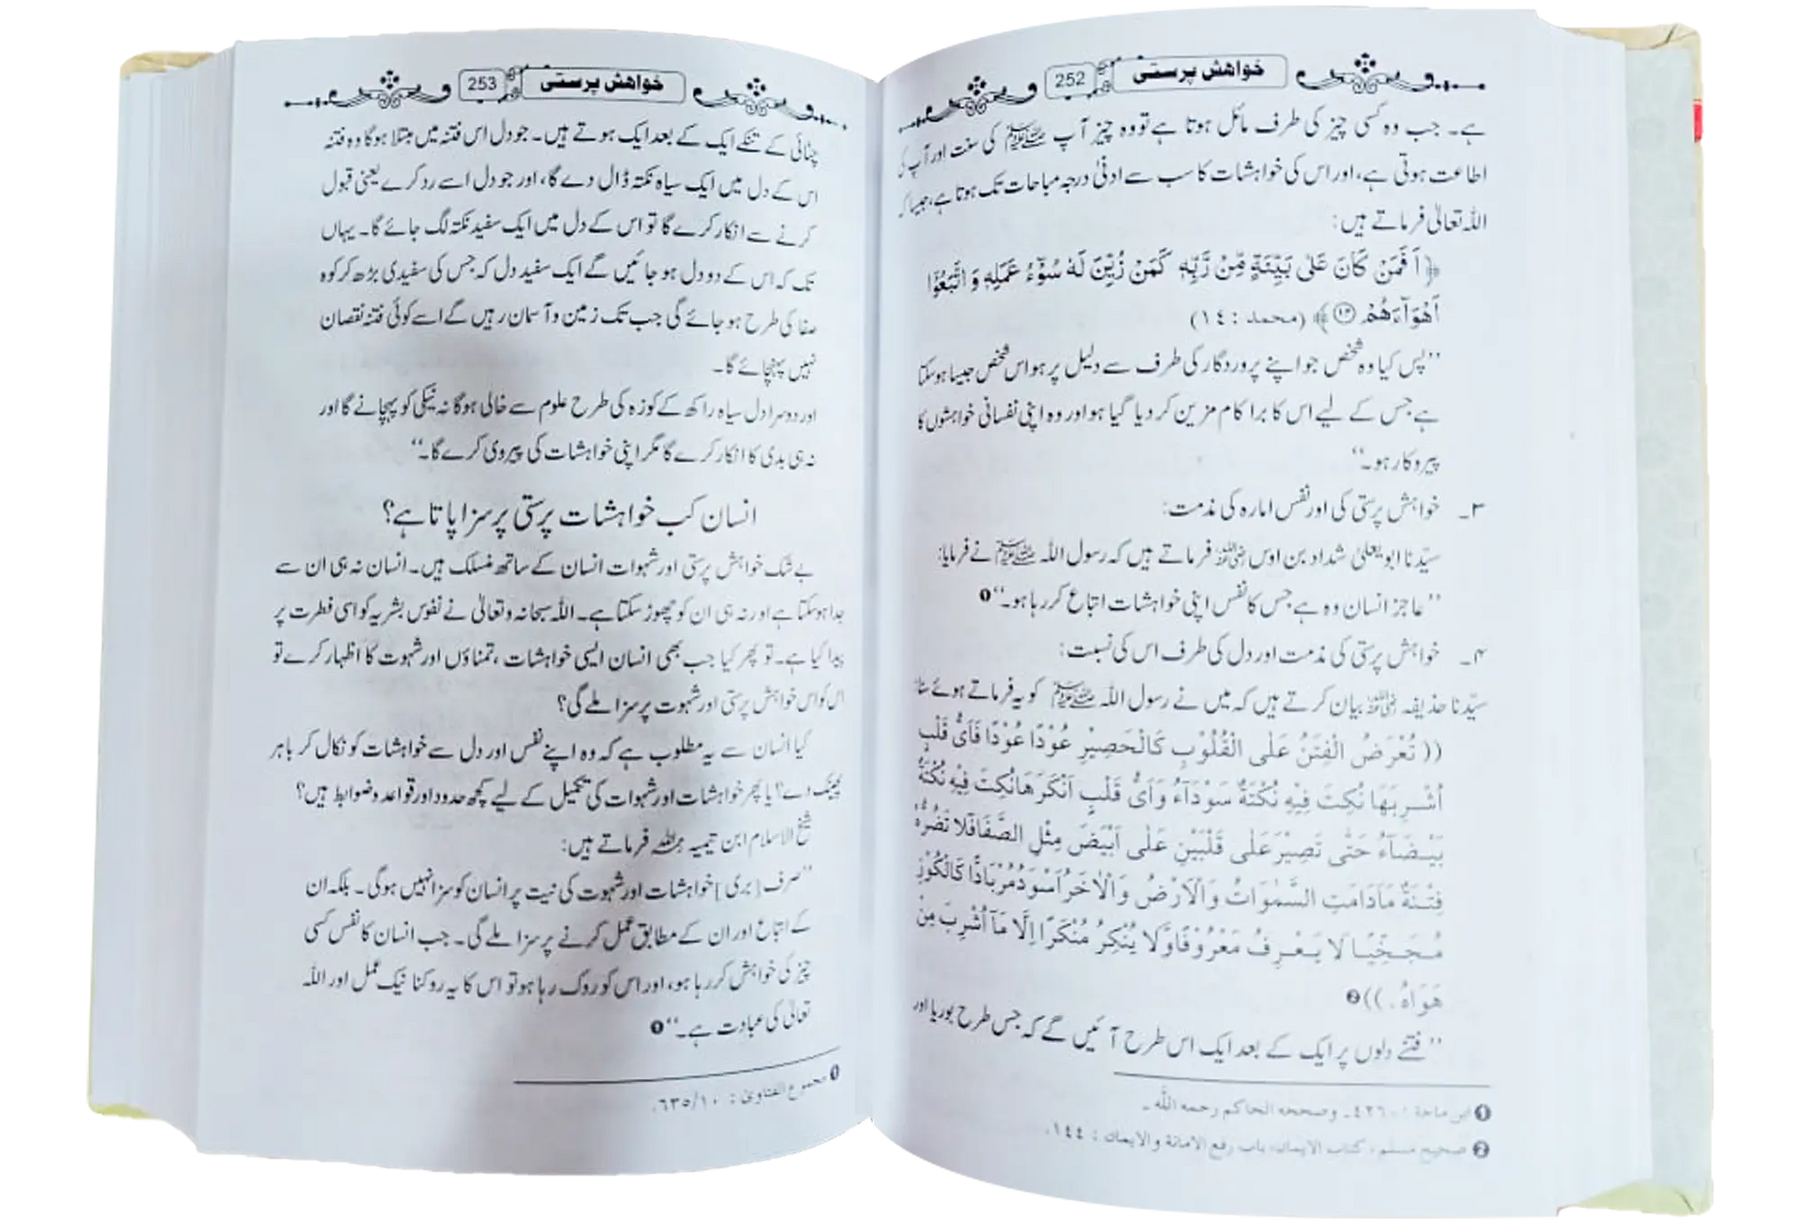 252 خواهش پرستی
ہے۔ جب وہ کسی چیز کی طرف مائل ہوتا ہے تو وہ چیز آپ ﷺ کی سنت اور آپ کی
اطاعت ہوتی ہے، اور اس کی خواہشات کا سب سے ادنیٰ درجہ مباحات تک ہوتا ہے، جیسا کہ
اللہ تعالیٰ فرماتے ہیں:
﴿ اَفَمَنْ كَانَ عَلٰى بَيِّنَةٍ مِّنْ رَّبِّهٖ كَمَنْ زُيِّنَ لَهٗ سُوْٓءُ عَمَلِهٖ وَ اتَّبَعُوْۤا
اَهْوَآءَهُمْ ۝۱۴ ﴾ (محمد : ١٤)
’’پس کیا وہ شخص جو اپنے پروردگار کی طرف سے دلیل پر ہو اس شخص جیسا ہو سکتا
ہے جس کے لیے اس کا برا کام مزین کر دیا گیا ہو اور وہ اپنی نفسانی خواہشوں کا
پیروکار ہو۔‘‘
۳۔ خواہش پرستی کی اور نفس امارہ کی مذمت:
سیّدنا ابو یعلیٰ شداد بن اوس رضی اللہ عنہ فرماتے ہیں کہ رسول اللہ ﷺ نے فرمایا:
’’عاجز انسان وہ ہے جس کا نفس اپنی خواہشات اتباع کر رہا ہو۔‘‘❶
۴۔ خواہش پرستی کی مذمت اور دل کی طرف اس کی نسبت:
سیّدنا حذیفہ رضی اللہ عنہ بیان کرتے ہیں کہ میں نے رسول اللہ ﷺ کو یہ فرماتے ہوئے سنا:
(( تُعْرَضُ الْفِتَنُ عَلٰى الْقُلُوْبِ كَالْحَصِيْرِ عُوْدًا عُوْدًا فَاَىُّ قَلْبٍ
اُشْرِبَهَا نُكِتَ فِيْهِ نُكْتَةٌ سَوْدَآءُ وَاَىُّ قَلْبٍ اَنْكَرَهَا نُكِتَ فِيْهِ نُكْتَةٌ
بَيْضَآءُ حَتّٰى تَصِيْرَ عَلٰى قَلْبَيْنِ عَلٰى اَبْيَضَ مِثْلِ الصَّفَا فَلَا تَضُرُّهُ
فِتْنَةٌ مَا دَامَتِ السَّمٰوَاتُ وَالْاَرْضُ وَالْاٰخَرُ اَسْوَدُ مُرْبَادًّا كَالْكُوْزِ
مُجَخِّيًا لَا يَعْرِفُ مَعْرُوْفًا وَّلَا يُنْكِرُ مُنْكَرًا اِلَّا مَآ اُشْرِبَ مِنْ
هَوَاهُ . ))❷
’’فتنے دلوں پر ایک کے بعد ایک اس طرح آئیں گے کہ جس طرح بوریا اور
❶ ابن ماجة : ٤٢٦٠۔ وصححه الحاكم رحمه الله ۔
❷ صحيح مسلم، كتاب الايمان، باب رفع الامانة والايمان : ١٤٤ .
253 خواهش پرستی
چٹائی کے تنکے ایک کے بعد ایک ہوتے ہیں۔ جو دل اس فتنہ میں مبتلا ہو گا وہ فتنہ
اس کے دل میں ایک سیاہ نکتہ ڈال دے گا، اور جو دل اسے رد کرے یعنی قبول
کرنے سے انکار کرے گا تو اس کے دل میں ایک سفید نکتہ لگ جائے گا۔ یہاں
تک کہ اس کے دو دل ہو جائیں گے ایک سفید دل کہ جس کی سفیدی بڑھ کر کوہ
صفا کی طرح ہو جائے گی جب تک زمین و آسمان رہیں گے اسے کوئی فتنہ نقصان
نہیں پہنچائے گا۔
اور دوسرا دل سیاہ راکھ کے کوزہ کی طرح علوم سے خالی ہو گا نہ نیکی کو پہچانے گا اور
نہ ہی بدی کا انکار کرے گا مگر اپنی خواہشات کی پیروی کرے گا۔‘‘
انسان کب خواہشات پرستی پر سزا پاتا ہے؟
بے شک خواہش پرستی اور شہوات انسان کے ساتھ منسلک ہیں۔ انسان نہ ہی ان سے
جدا ہو سکتا ہے اور نہ ہی ان کو چھوڑ سکتا ہے۔ اللہ سبحانہ وتعالیٰ نے نفوس بشریہ کو اسی فطرت پر
پیدا کیا ہے۔ تو پھر کیا جب بھی انسان ایسی خواہشات، تمناؤں اور شہوت کا اظہار کرے تو
اس کو اس خواہش پرستی اور شہوت پر سزا ملے گی؟
کیا انسان سے یہ مطلوب ہے کہ وہ اپنے نفس اور دل سے خواہشات کو نکال کر باہر
پھینک دے؟ یا پھر خواہشات اور شہوات کی تکمیل کے لیے کچھ حدود اور قواعد و ضوابط ہیں؟
شیخ الاسلام ابن تیمیہ رحمہ اللہ فرماتے ہیں:
’’صرف [بری] خواہشات اور شہوت کی نیت پر انسان کو سزا نہیں ہو گی۔ بلکہ ان
کے اتباع اور ان کے مطابق عمل کرنے پر سزا ملے گی۔ جب انسان کا نفس کسی
چیز کی خواہش کر رہا ہو، اور اس کو روک رہا ہو تو اس کا یہ روکنا نیک عمل اور اللہ
تعالیٰ کی عبادت ہے۔‘‘❶
❶ مجموع الفتاوىٰ : ٦٣٥/١٠.